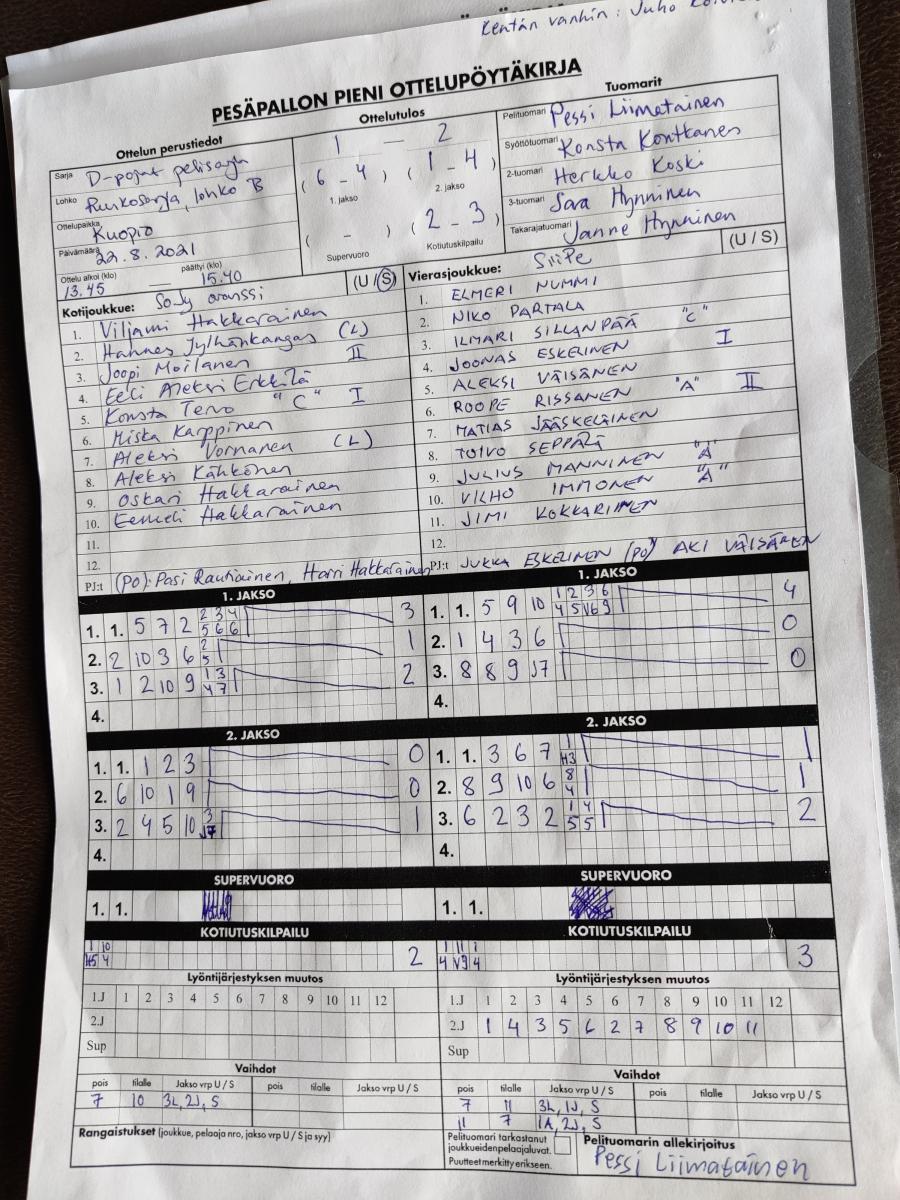 Kentän vanhin: Juho
PESÄPALLON PIENI OTTELUPÖYTÄKIRJA
Ottelun perustiedot
Sarja D-pojat pelisarja
Lohko Runkosarja, lohko B
Ottelupaikka Kuopio
Päivämäärä 22.8.2021
Ottelu alkoi (klo) 13.45 — päättyi (klo) 15.40
Ottelutulos
1 — 2
(6 - 4) (1 - 4)
1. jakso 2. jakso
( - ) (2 - 3)
Supervuoro Kotiutuskilpailu
Tuomarit
Pelituomari Pessi Liimatainen
Syöttötuomari Konsta Kontkanen
2-tuomari Herkko Koski
3-tuomari Sara Hynninen
Takarajatuomari Janne Hynninen
Kotijoukkue: SoJy oranssi (U / S)
1. Viljami Hakkarainen
2. Hannes Jylhänkangas (L)
3. Joopi Moilanen II
4. Eeli Aleksi Erkkilä
5. Konsta Tervo "C" I
6. Miska Karppinen
7. Aleksi Vornanen (L)
8. Aleksi Kähkönen
9. Oskari Hakkarainen
10. Eemeli Hakkarainen
11.
12.
PJ:t (PO): Pasi Rautiainen, Harri Hakkarainen
Vierasjoukkue: SiiPe (U / S)
1. ELMERI NUMMI
2. NIKO PARTALA
3. ILMARI SILLANPÄÄ "C"
4. JOONAS ESKELINEN I
5. ALEKSI VÄISÄNEN
6. ROOPE RISSANEN "A" II
7. MATIAS JÄÄSKELÄINEN
8. TOIVO SEPPÄLÄ
9. JULIUS MANNINEN "A"
10. VILHO IMMONEN "A"
11. JIMI KOKKARINEN
12.
PJ:t JUKKA ESKELINEN (PO) AKI VÄISÄNEN
1. JAKSO
1. 1. 5 7 2 2 3 4 3
5 6 6
2. 2 10 3 6 2 1
5
3. 1 2 10 9 1 3 2
4 7
4.
1. JAKSO
1. 1. 5 9 10 1 2 3 6 4
4 5 V6 9
2. 1 4 3 6 0
3. 8 8 9 J7 0
4.
2. JAKSO
1. 1. 1 2 3 0
2. 6 10 1 9 0
3. 2 4 5 10 3 1
J7
4.
2. JAKSO
1. 1. 3 6 7 1 1
H3
2. 8 9 10 6 8 1
4
3. 6 2 3 2 1 4 2
5 5
4.
SUPERVUORO
1. 1.
SUPERVUORO
1. 1.
KOTIUTUSKILPAILU
1 10 2
H5 4
KOTIUTUSKILPAILU
1 11 1 3
4 V9 4
Lyöntijärjestyksen muutos
1.J 1 2 3 4 5 6 7 8 9 10 11 12
2.J
Sup
Lyöntijärjestyksen muutos
1.J 1 2 3 4 5 6 7 8 9 10 11 12
2.J 1 4 3 5 6 2 7 8 9 10 11
Sup
Vaihdot
pois tilalle Jakso vrp U / S pois tilalle Jakso vrp U / S
7 10 3L, 2J, S
Vaihdot
pois tilalle Jakso vrp U / S pois tilalle Jakso vrp U / S
7 11 3L, 1J, S
11 7 1A, 2J, S
Rangaistukset (joukkue, pelaaja nro, jakso vrp U / S ja syy)
Pelituomari tarkastanut
joukkueiden pelaajaluvat.
Puutteet merkitty erikseen.
Pelituomarin allekirjoitus
Pessi Liimatainen